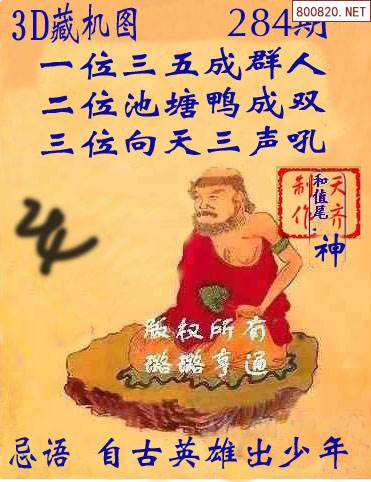 800820.NET
3D藏机图 284期
一位三五成群人
二位池塘鸭成双
三位向天三声吼
天齐
制作
和值尾:神
版权所有
璐璐亨通
忌语 自古英雄出少年